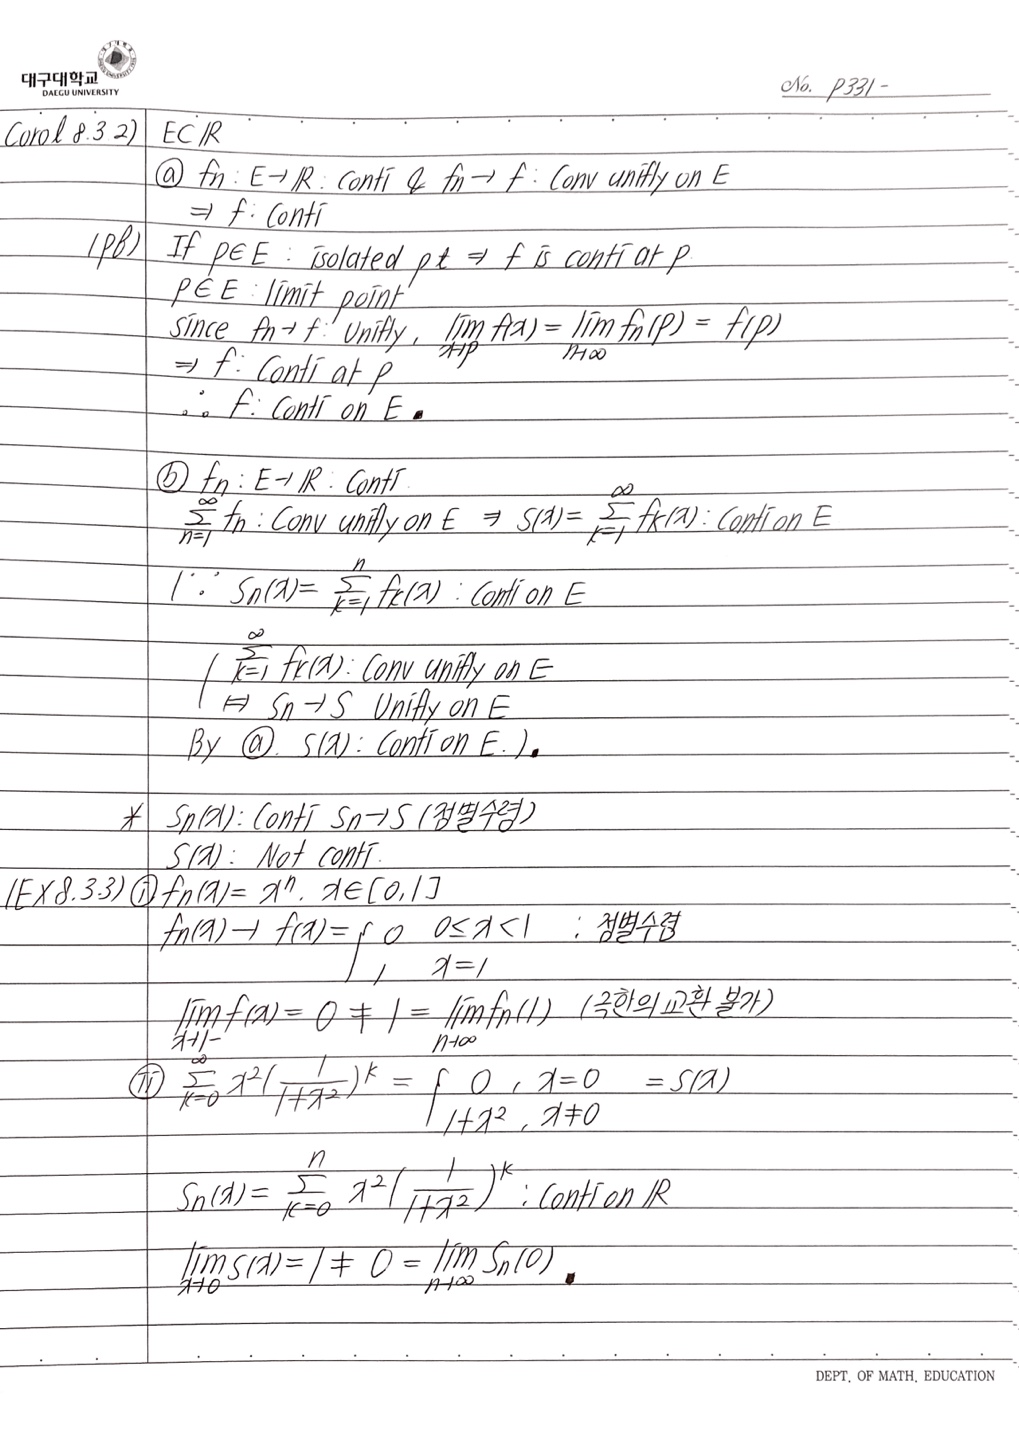 대구대학교
DAEGU UNIVERSITY
No. p331-
Corol 8.3 2) E⊂ℝ
ⓐ fn : E→ℝ : Conti & fn → f : Conv unifly on E
⇒ f : Conti
(pf) If p∈E : isolated pt ⇒ f is conti at p
p∈E : limit point
since fn→f : Unifly, lim_{x→p} f(x) = lim_{n→∞} fn(p) = f(p)
⇒ f : Conti at p
∴ f : Conti on E ▪
ⓑ fn : E→ℝ : Conti
∑_{n=1}^{∞} fn : Conv unifly on E ⇒ S(x) = ∑_{k=1}^{∞} fk(x) : Conti on E
(∵ Sn(x) = ∑_{k=1}^{n} fk(x) : Conti on E
( ∑_{k=1}^{∞} fk(x) : Conv unifly on E
⇔ Sn → S Unifly on E
By ⓐ. S(x) : Conti on E. ) ▪
* Sn(x) : Conti Sn→S (점별수렴)
S(x) : Not conti.
(EX 8.3.3) ⓘ fn(x) = xⁿ. x∈[0,1]
fn(x) → f(x) = { 0 0≤x<1 : 점별수렴
1 x=1
lim_{x→1-} f(x) = 0 ≠ 1 = lim_{n→∞} fn(1) (극한의 교환 불가)
ⓘⓘ ∑_{k=0}^{∞} x²(1/(1+x²))^k = { 0 , x=0 = S(x)
1+x² , x≠0
Sn(x) = ∑_{k=0}^{n} x²(1/(1+x²))^k : Conti on ℝ
lim_{x→0} S(x) = 1 ≠ 0 = lim_{n→∞} Sn(0) ▪
DEPT. OF MATH. EDUCATION